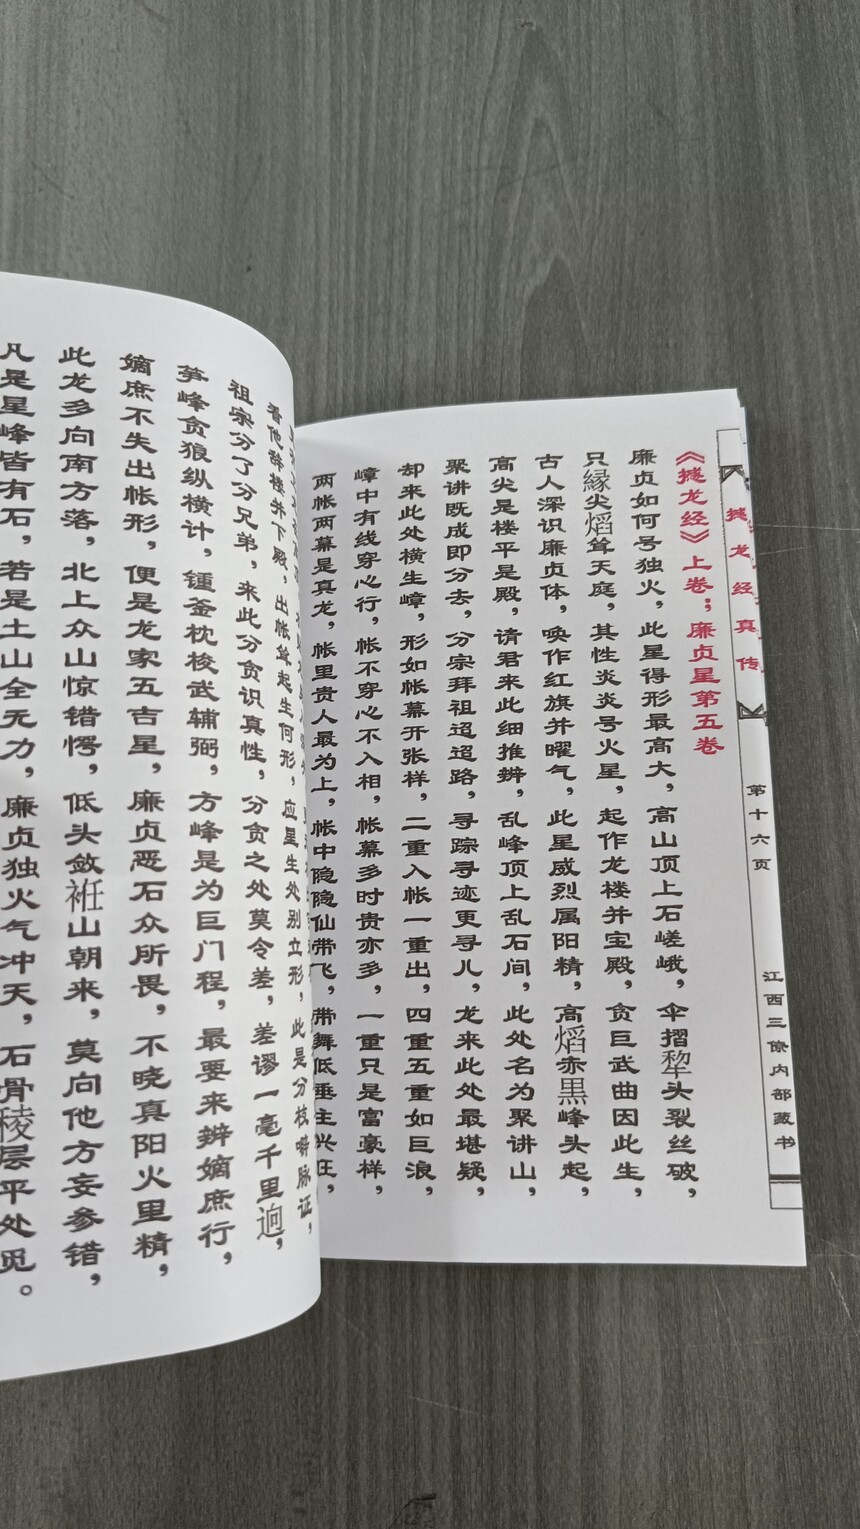 撼龙经真传
第十六页
江西三僚内部藏书
《撼龙经》上卷；廉贞星第五卷
廉贞如何号独火，此星得形最高大，高山顶上石嵯峨，伞摺犂头裂丝破，
只縁尖熖耸天庭，其性炎炎号火星，起作龙楼并宝殿，贪巨武曲因此生，
古人深识廉贞体，唤作红旗并曜气，此星威烈属阳精，高熖赤黒峰头起，
高尖是楼平是殿，请君来此细推辨，乱峰顶上乱石间，此处名为聚讲山，
聚讲既成即分去，分宗拜祖迢迢路，寻踪寻迹更寻儿，龙来此处最堪疑，
却来此处横生嶂，形如帐幕开张样，二重入帐一重出，四重五重如巨浪，
嶂中有线穿心行，帐不穿心不入相，帐幕多时贵亦多，一重只是富豪样，
两帐两幕是真龙，帐里贵人最为上，帐中隐隐仙带飞，带舞低垂主兴旺，
看他辞楼并下殿，出帐耸起生何形，应星生处别立形，此是分枝劈脉证，
祖宗分了分兄弟，来此分贪识真性，分贪之处莫令差，差谬一毫千里逈，
笋峰贪狼纵横计，锺釜枕梭武辅弼，方峰是为巨门程，最要来辨嫡庶行，
嫡庶不失出帐形，便是龙家五吉星，廉贞恶石众所畏，不晓真阳火里精，
此龙多向南方落，北上众山惊错愕，低头敛袵山朝来，莫向他方妄参错，
凡是星峰皆有石，若是土山全无力，廉贞独火气冲天，石骨稜层平处觅。